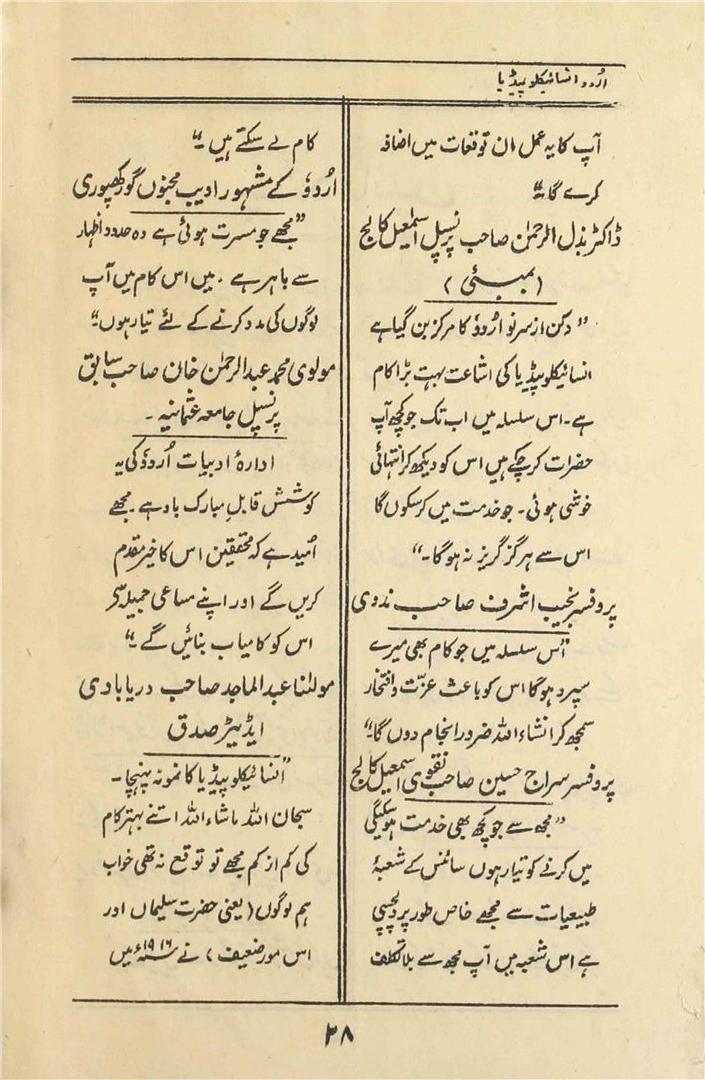 اُردو انسائیکلوپیڈیا
آپ کا یہ عمل ان توقعات میں اضافہ
کرے گا۔"
ڈاکٹر بذل الرحمٰن صاحب پرنسپل اسمٰعیل کالج
(بمبئی)
"دکن از سرنو اُردو کا مرکز بن گیا ہے
انسائیکلوپیڈیا کی اشاعت بہت بڑا کام
ہے۔ اس سلسلہ میں اب تک جو کچھ آپ
حضرات کرچکے ہیں اس کو دیکھ کر انتہائی
خوشی ہوئی۔ جو خدمت میں کرسکوں گا
اس سے ہرگز گریز نہ ہوگا۔"
پروفسر نجیب اشرف صاحب ندوی
"اس سلسلہ میں جو کام بھی میرے
سپرد ہوگا اس کو باعث عزّت و افتخار
سمجھ کر انشاء اللہ ضرور انجام دوں گا۔"
پروفسر سراج حسین صاحب نقوی اسمٰعیل کالج
"مجھ سے جو کچھ بھی خدمت ہوسکیگی
میں کرنے کو تیار ہوں سائنس کے شعبۂ
طبیعیات سے مجھے خاص طور پر دلچسپی
ہے اس شعبہ میں آپ مجھ سے بلا تکلف
کام لے سکتے ہیں۔"
اُردو کے مشہور ادیب مجنوں گورکھپوری
"مجھے جو مسرت ہوئی ہے وہ حدود اظہار
سے باہر ہے۔ میں اس کام میں آپ
لوگوں کی مدد کرنے کے لئے تیار ہوں۔"
مولوی محمد عبدالرحمٰن خان صاحب سابق
پرنسپل جامعہ عثمانیہ۔
ادارۂ ادبیات اُردو کی یہ
کوشش قابلِ مبارک باد ہے۔ مجھے
اُمید ہے کہ محققین اس کا خیر مقدم
کریں گے اور اپنے مساعی جمیلہ سے
اس کو کامیاب بنائیں گے۔"
مولٰنا عبدالماجد صاحب دریابادی
ایڈیٹر صدق
"انسائیکلوپیڈیا کا نمونہ پہنچا۔
سبحان اللہ ماشاء اللہ اتنے بہتر کام
کی کم از کم مجھے تو توقع نہ تھی خواب
ہم لوگوں (یعنی حضرت سلیماں اور
اس مور ضعیف) نے ۱۹۱۶ء میں
۲۸